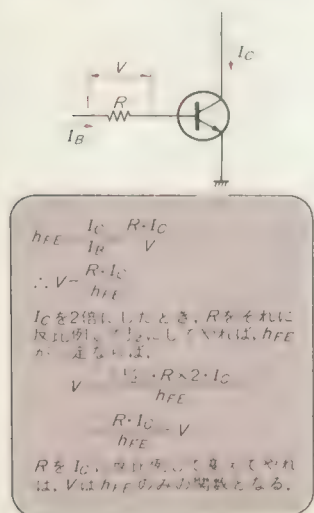 V
I_C
R
I_B
h_FE I_C R·I_C
I_B V
∴ V= R·I_C
h_FE
I_Cを2倍にしたとき,Rをそれに
反比例 してやれば,h_FE
が一定ならば,
V ½·R×2·I_C
h_FE
R·I_C V
h_FE
RをI_C, 変えてやれ
ば,Vはh_FEのみの関数となる.